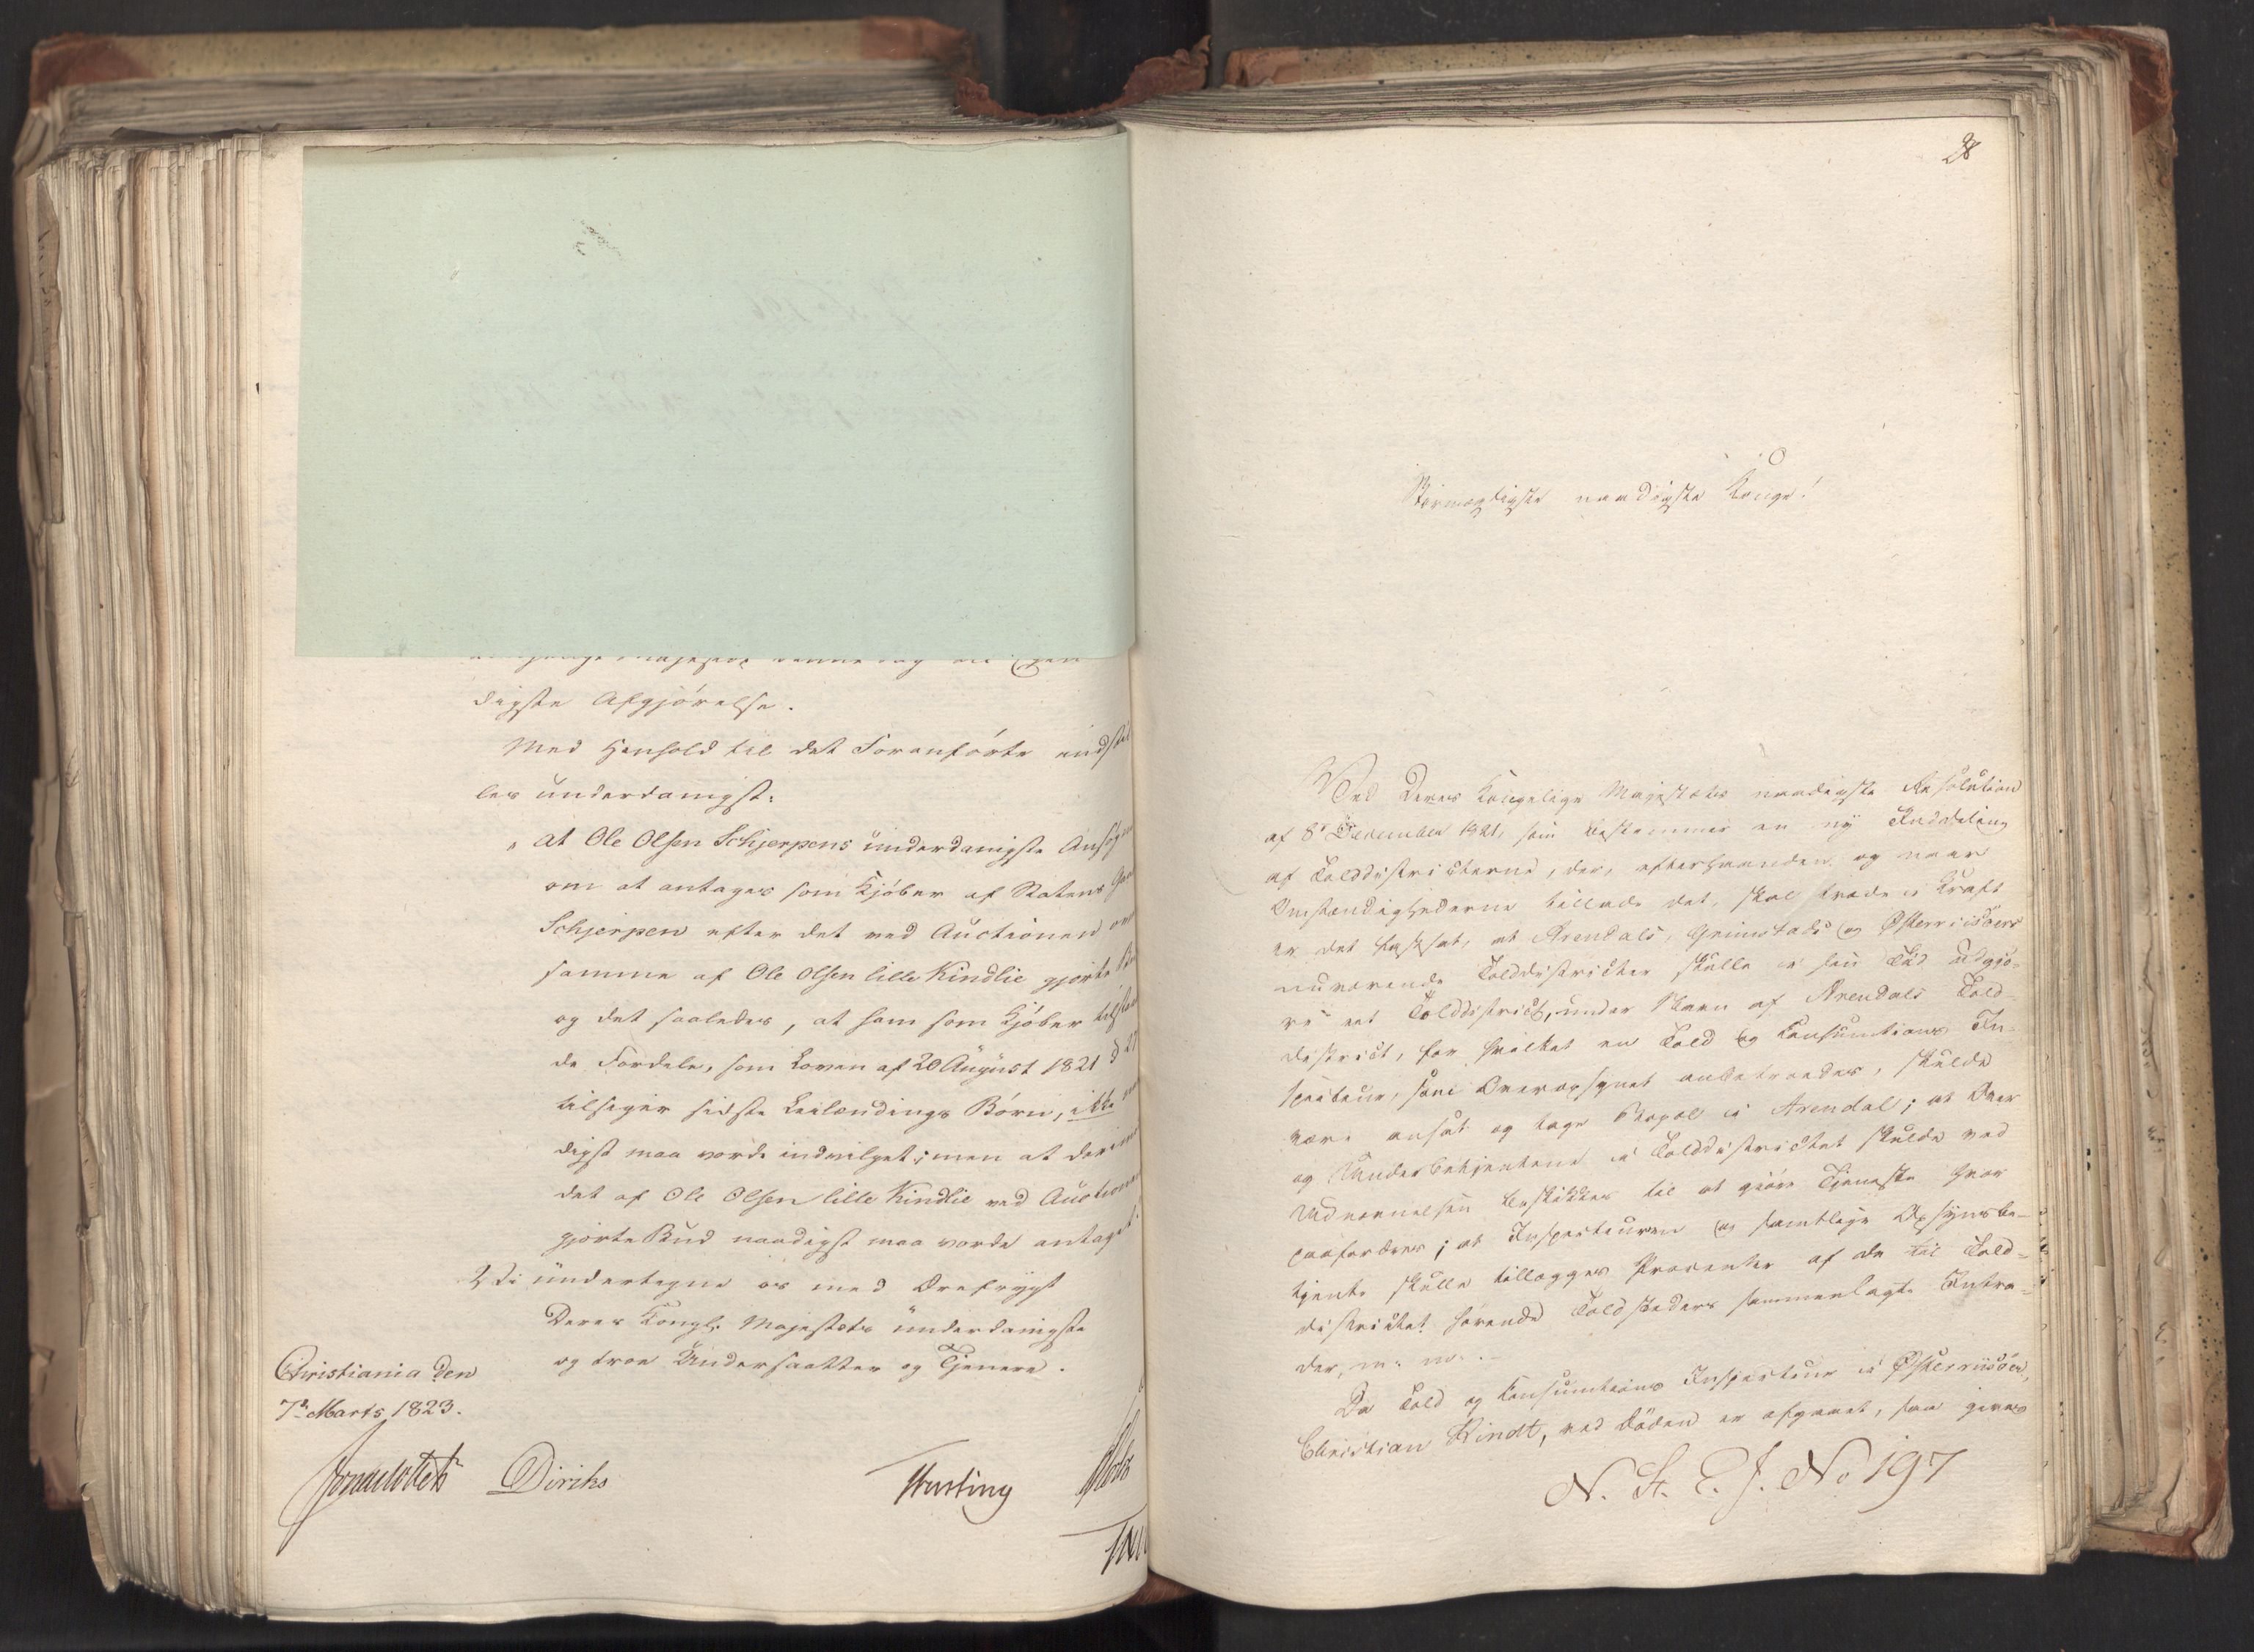 digste Afgjörelse.
Med Henhold til det Foranförte indstil
les underdanigst:
"At Ole Olsen Schjerpens underdanigste Ansög
om at antages som Kjöber af Statens
Schjerpen efter det ved Auctionen
samme af Ole Olsen lille Kindlie gjorte
og det saaledes, at ham som Kjöber
de Fordele, som Loven af 20 August 1821
tilsiger sidste Leilændings Börn, ikke
digst maa vorde indvilget; men at der
det af Ole Olsen lille Kindlie ved Auctionen
gjorte Bud naadigst maa vorde antaget.
Vi undertegne os med Ærefrygt
Deres Kongl: Majestæts underdanigste
og troe Undersaatter og Tjenere.
Christiania den
7de Marts 1823.
Diriks
28
Stormægtigste naadigste Konge!
Ved Deres Kongelige Majestæts naadigste Resolution
af 8de December 1821, som bestemmer en ny Inddeling
af Tolddistricterne, der, efterhaanden og naar
Omstændighederne tillade det, skal træde i Kraft
er det fastsat, at Arendals, Grimstads og Österriisöers
nuværende Tolddistricter skulle i sin Tid udgjö-
re eet Tolddistrict, under Navn af Arendals Told-
district, for hvilket en Told og Consumtions In-
specteur, som Overopsynet anbetroedes, skulde
være ansat og tage Bopæl i Arendal; at Over
og Underbetjentene i Tolddistrictet skulde ved
Udnævnelsen beskikkes til at gjöre Tjeneste hvor
paafordres; at Inspecteuren og samtlige Opsynsbe-
tjente skulle tillægges Procenter af de til Told-
districtet hörende Toldsteders sammenlagte Intra-
der, m: m:.
Da Told og Consumtions Inspecteur i Österriisöer,
Christian Rindt, ved Döden er afgaaet, saa gives
N. St. E. J. No 197